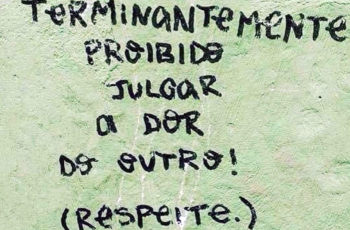 TERMINANTEMENTE
PROIBIDO
JULGAR
A DOR
DO OUTRO!
(RESPEITE.)